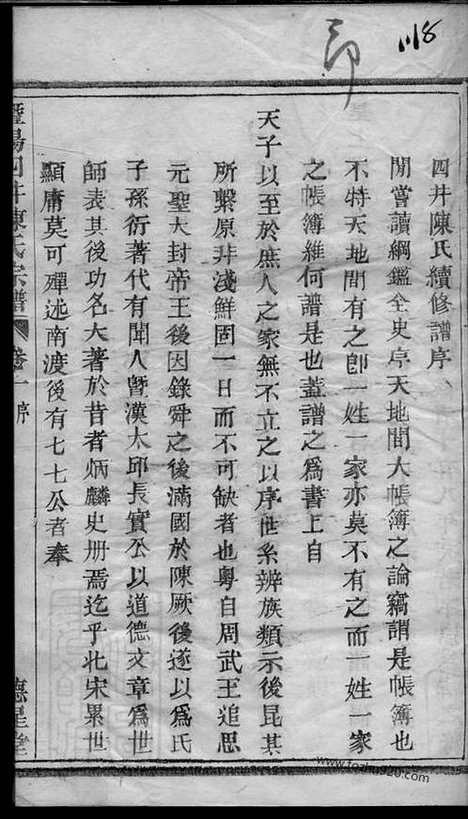 118
四井陳氏續修譜序
閒嘗讀綱鑑全史序天地間大帳簿之論竊謂是帳簿也
不特天地間有之卽一姓一家亦莫不有之而一姓一家
之帳簿維何譜是也蓋譜之為書上自
天子以至於庶人之家無不立之以序世系辨族類示後昆其
所繫原非淺鮮固一日而不可缺者也粵自周武王追思
元聖大封帝王後因錄舜之後滿國於陳厥後遂以為氏
子孫衍著代有聞人曁漢太邱長寔公以道德文章為世
師表其後功名大著於昔者炳麟史册焉迄乎北宋累世
顯庸莫可殫述南渡後有七七公者奉
暨陽四井陳氏宗譜
卷一
序
德星堂
www.fozhu920.com